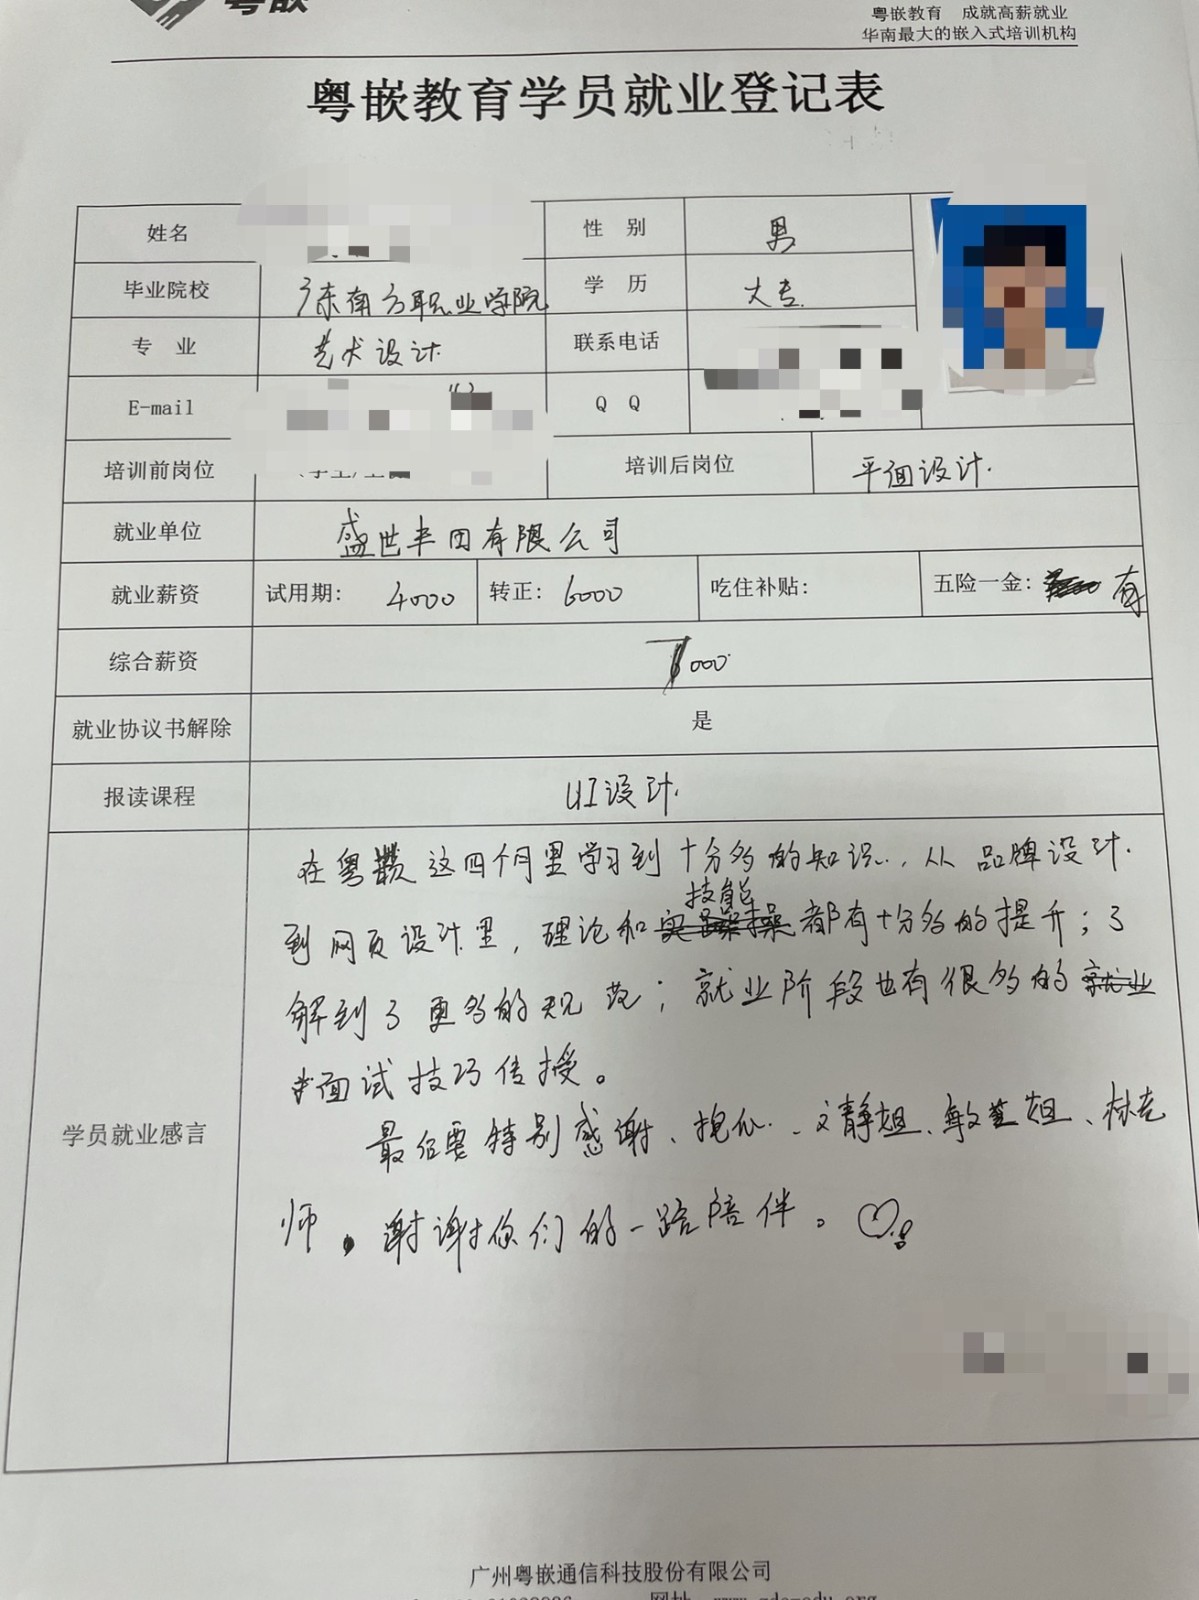 粤嵌
粤嵌教育 成就高薪就业
华南最大的嵌入式培训机构
粤嵌教育学员就业登记表
姓名 性 别 男
毕业院校 广东南方职业学院 学 历 大专.
专 业 艺术设计 联系电话
E-mail Q Q
培训前岗位 培训后岗位 平面设计.
就业单位 盛世丰田有限公司
就业薪资 试用期: 4000 转正: 6000 吃住补贴: 五险一金: 有
综合薪资 7000
就业协议书解除 是
报读课程 UI设计.
学员就业感言
在粤嵌这四个月里学习到十分多的知识., 从品牌设计.
技能
到网页设计里, 理论和实操都有十分多的提升; 了
解到了更多的规范; 就业阶段也有很多的就业
面试技巧传授。
最后要特别感谢、 、文静姐、敏 姐、林老
师。谢谢你们的一路陪伴。
广州粤嵌通信科技股份有限公司